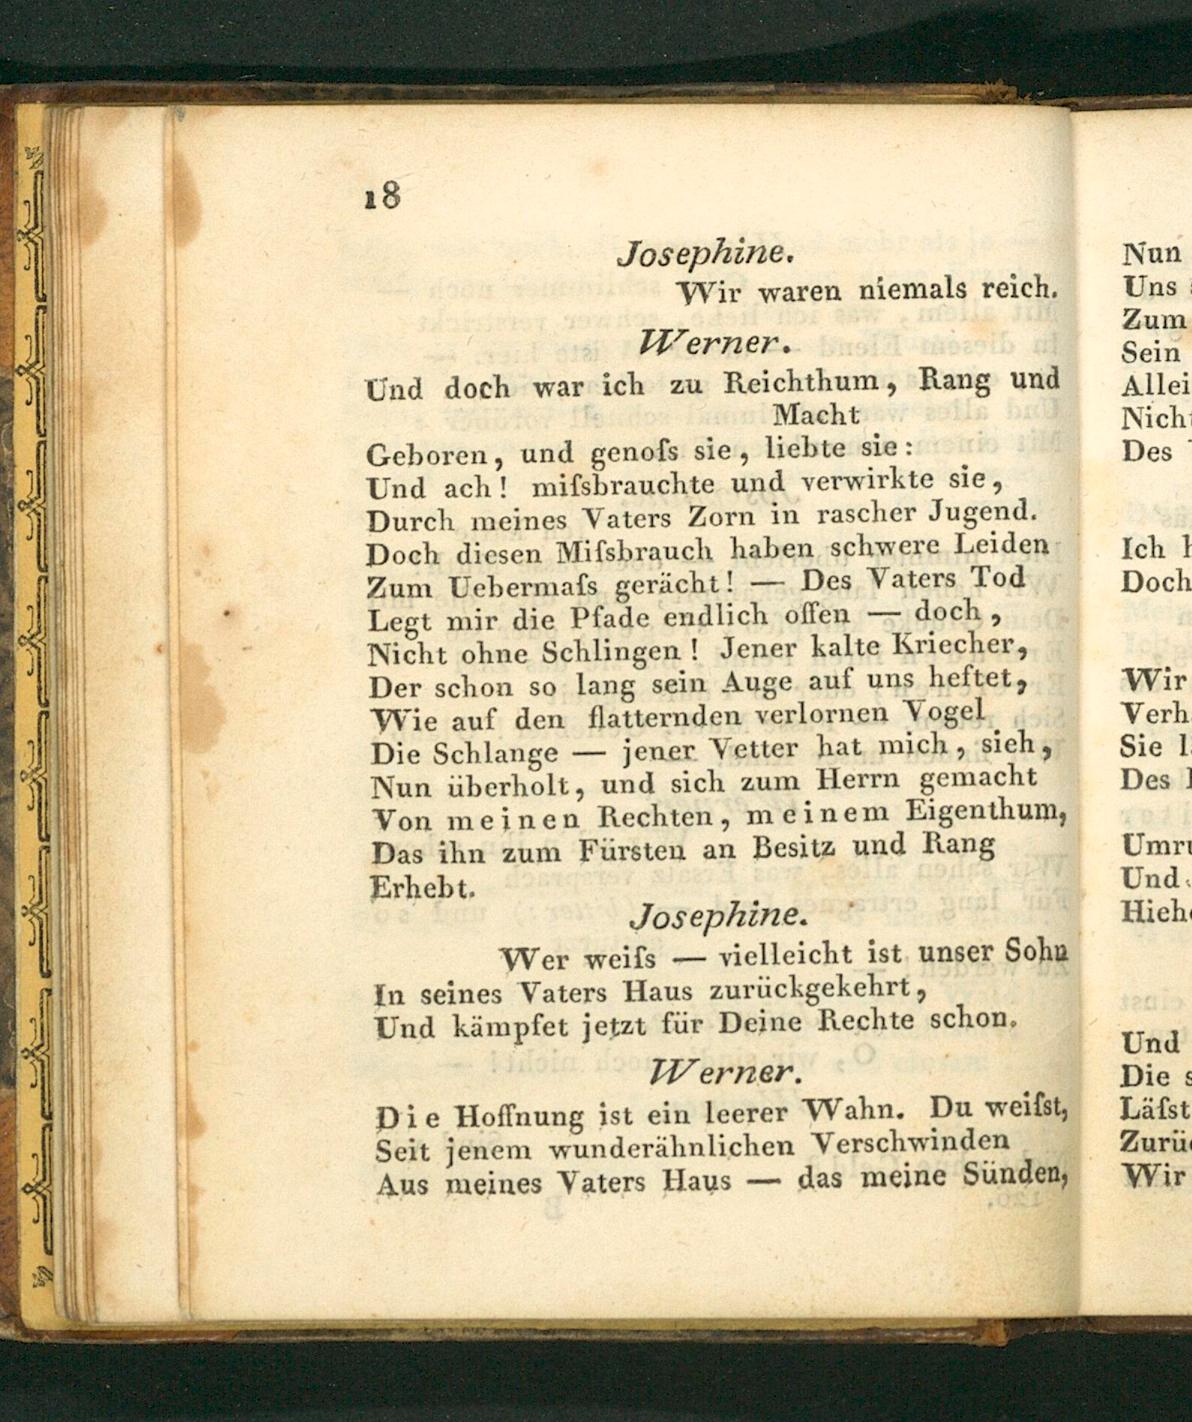 18
Josephine.
Wir waren niemals reich.
Werner.
Und doch war ich zu Reichthum, Rang und
Macht
Geboren, und genoſs sie, liebte sie:
Und ach! miſsbrauchte und verwirkte sie,
Durch meines Vaters Zorn in rascher Jugend.
Doch diesen Miſsbrauch haben schwere Leiden
Zum Uebermaſs gerächt! — Des Vaters Tod
Legt mir die Pfade endlich offen — doch,
Nicht ohne Schlingen! Jener kalte Kriecher,
Der schon so lang sein Auge auf uns heftet,
Wie auf den flatternden verlornen Vogel
Die Schlange — jener Vetter hat mich, sieh,
Nun überholt, und sich zum Herrn gemacht
Von meinen Rechten, meinem Eigenthum,
Das ihn zum Fürsten an Besitz und Rang
Erhebt.
Josephine.
Wer weiſs — vielleicht ist unser Sohn
In seines Vaters Haus zurückgekehrt,
Und kämpfet jetzt für Deine Rechte schon.
Werner.
Die Hoffnung ist ein leerer Wahn. Du weiſst,
Seit jenem wunderähnlichen Verschwinden
Aus meines Vaters Haus — das meine Sünden,
Nun
Uns
Zum
Sein
Allei
Nicht
Des
Ich
Doch
Wir
Verh
Sie
Des
Umru
Und
Hiehe
Und
Die
Läſst
Zurüc
Wir